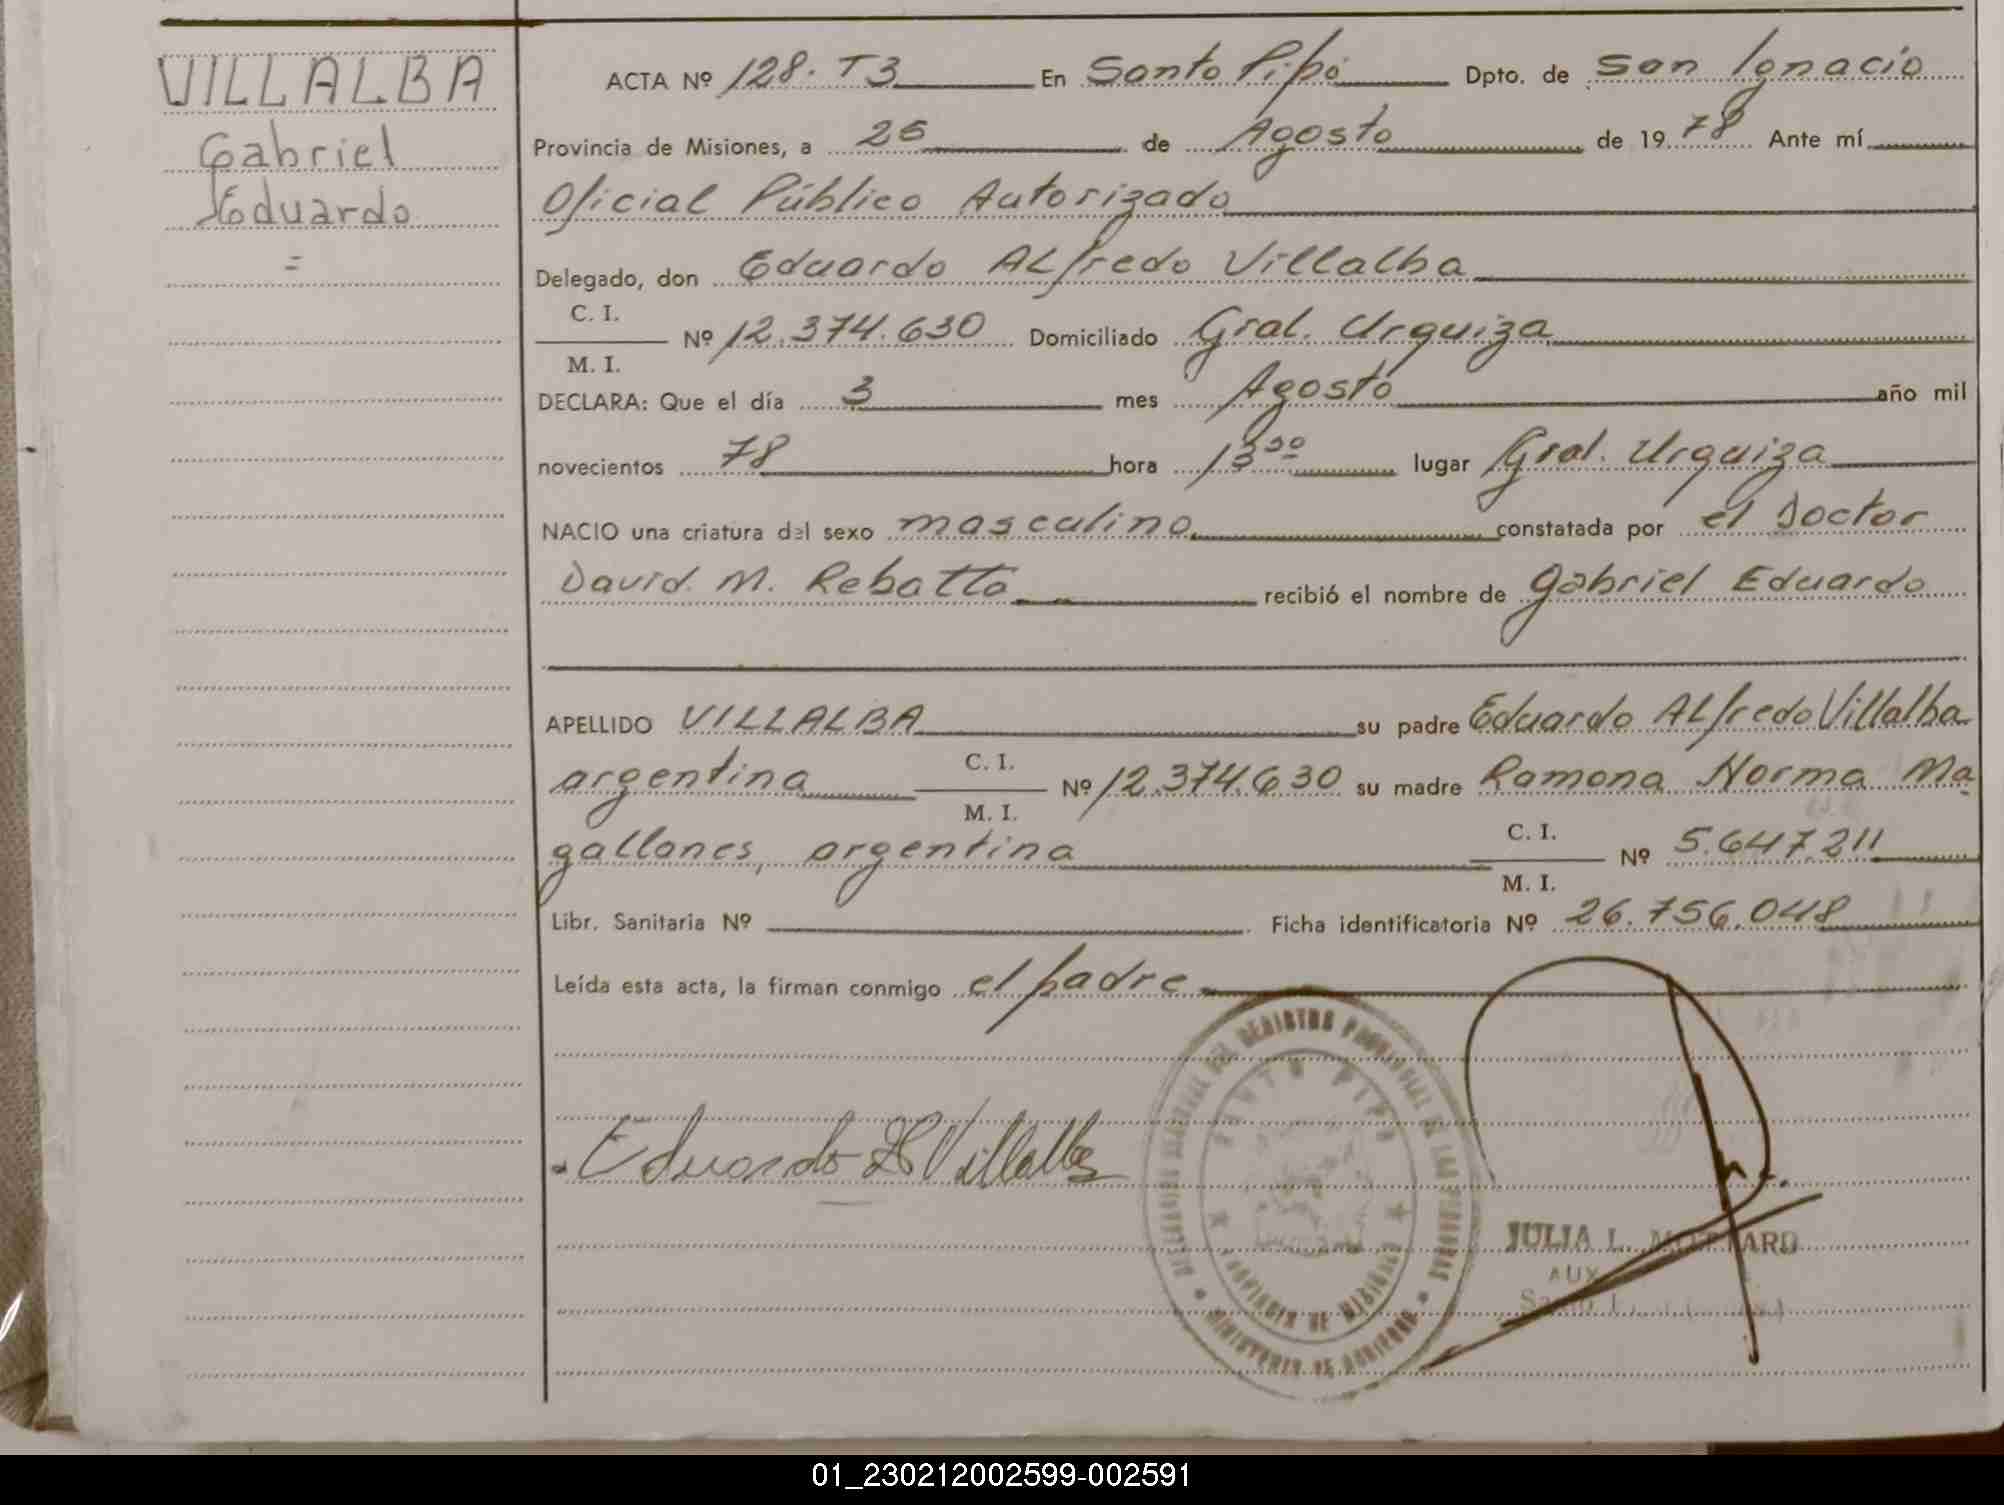 VILLALBA
Gabriel
Eduardo
=
ACTA Nº 128. T3 En Santo Pipó Dpto. de San Ignacio
Provincia de Misiones, a 25 de Agosto de 1978 Ante mí
Oficial Público Autorizado
Delegado, don Eduardo Alfredo Villalba
C. I.
M. I.
Nº 12.374.630 Domiciliado Gral. Urquiza
DECLARA: Que el día 3 mes Agosto año mil
novecientos 78 hora 13³⁰ lugar Gral. Urquiza
NACIO una criatura del sexo masculino constatada por el Doctor
David. M. Rebatto recibió el nombre de Gabriel Eduardo
APELLIDO VILLALBA su padre Eduardo Alfredo Villalba
argentina C. I. M. I. Nº 12.374.630 su madre Ramona Norma Ma
gallanes, argentina C. I. M. I. Nº 5.647.211
Libr. Sanitaria Nº Ficha identificatoria Nº 26.756.048
Leída esta acta, la firman conmigo el padre
Eduardo A Villalba
REGISTRO PROVINCIAL DE LAS PERSONAS
SANTO PIPO
PROVINCIA DE MISIONES
MINISTERIO DE GOBIERNO
JULIA L.
AUX
01_230212002599-002591